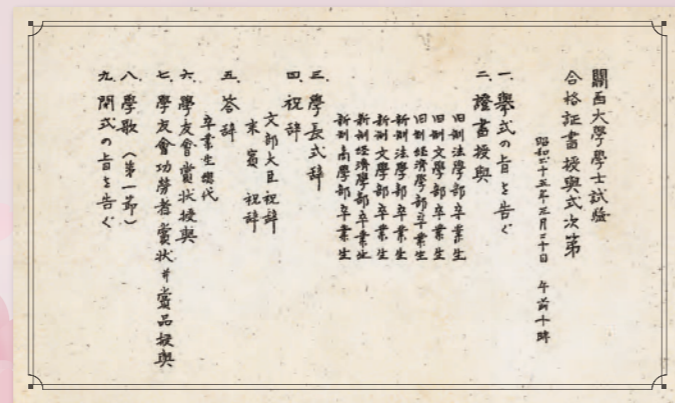 關西大學學士試驗
合格証書授與式次第
昭和二十五年三月二十日 午前十時
一、擧式の旨を告ぐ
二、證書授與
旧制法學部卒業生
旧制文學部卒業生
旧制経済學部卒業生
新制法學部卒業生
新制文學部卒業生
新制経済學部卒業生
新制商學部卒業生
三、學長式辞
四、祝辞
文部大臣祝辞
来賓 祝辞
五、答辞
卒業生総代
六、學友會賞状授與
七、學友會功労者賞状並賞品授與
八、學歌(第一節)
九、閉式の旨を告ぐ